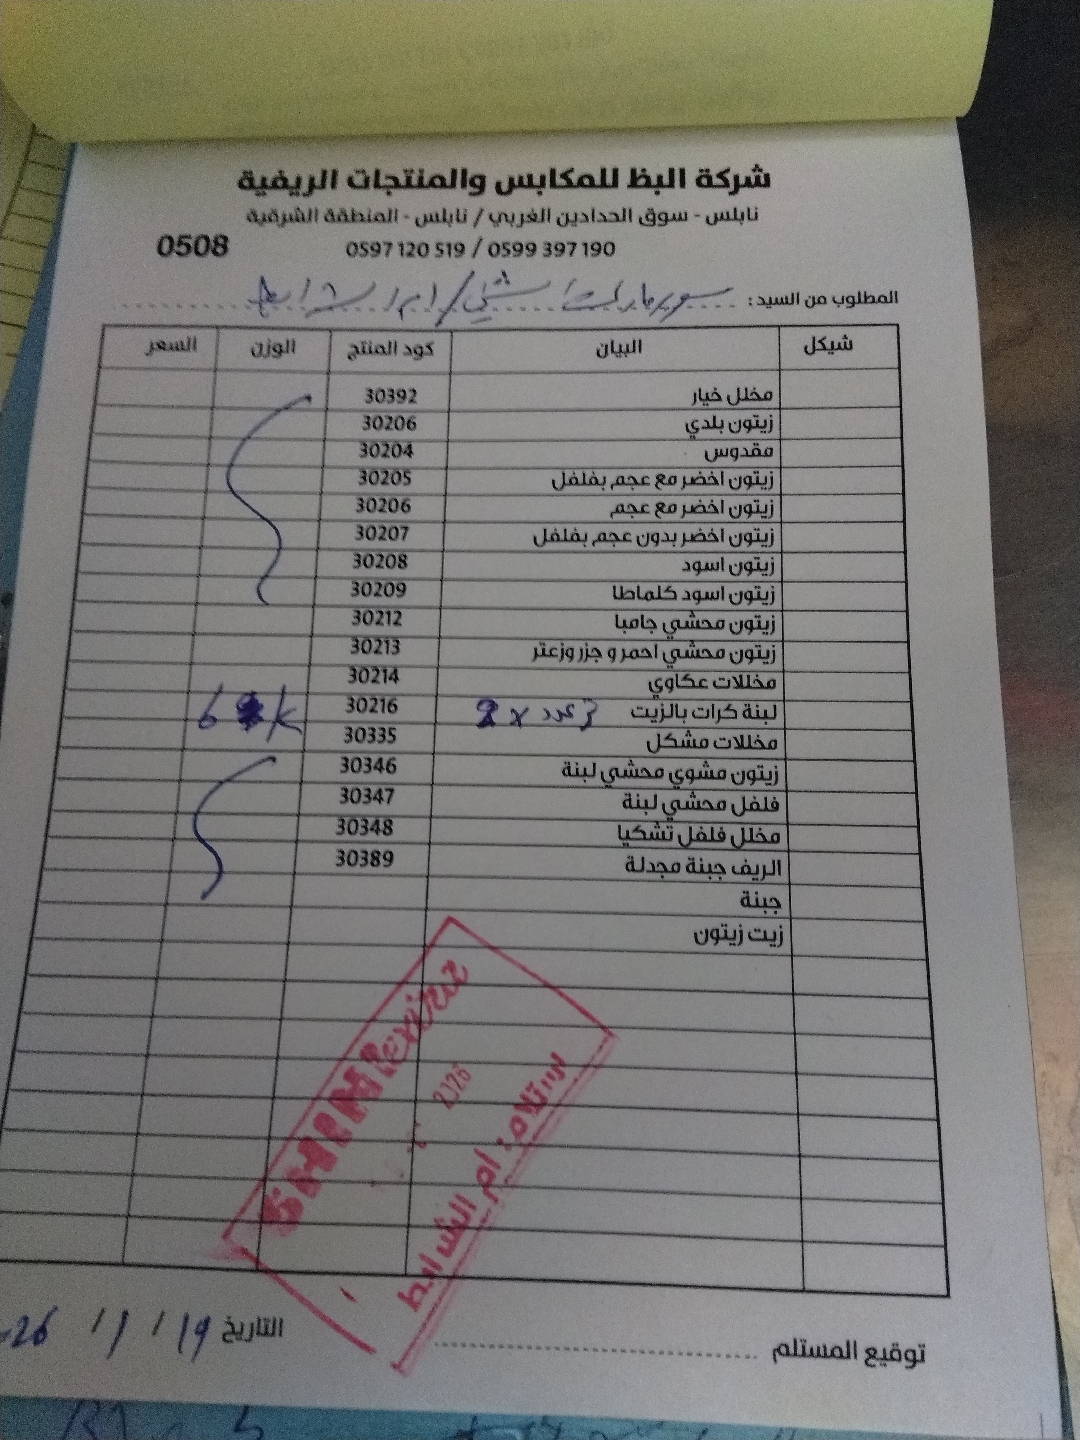 شركة البظ للمكابس والمنتجات الريفية
نابلس - سوق الحدادين الغربي / نابلس - المنطقة الشرقية
0508 0597 120 519 / 0599 397 190
المطلوب من السيد: سوبرماركت
شيكل البيان كود المنتج الوزن السعر
مخلل خيار 30392
زيتون بلدي 30206
مقدوس 30204
زيتون اخضر مع عجم بفلفل 30205
زيتون اخضر مع عجم 30206
زيتون اخضر بدون عجم بفلفل 30207
زيتون اسود 30208
زيتون اسود كلماطا 30209
زيتون محشي جامبا 30212
زيتون محشي احمر و جزر وزعتر 30213
مخللات عكاوي 30214
لبنة كرات بالزيت 30216
مخللات مشكل 30335
زيتون مشوي محشي لبنة 30346
فلفل محشي لبنة 30347
مخلل فلفل تشكيا 30348
الريف جبنة مجدلة 30389
جبنة
زيت زيتون
2026
استلام: ام الشرايط
توقيع المستلم
التاريخ 19 / 1 / 26